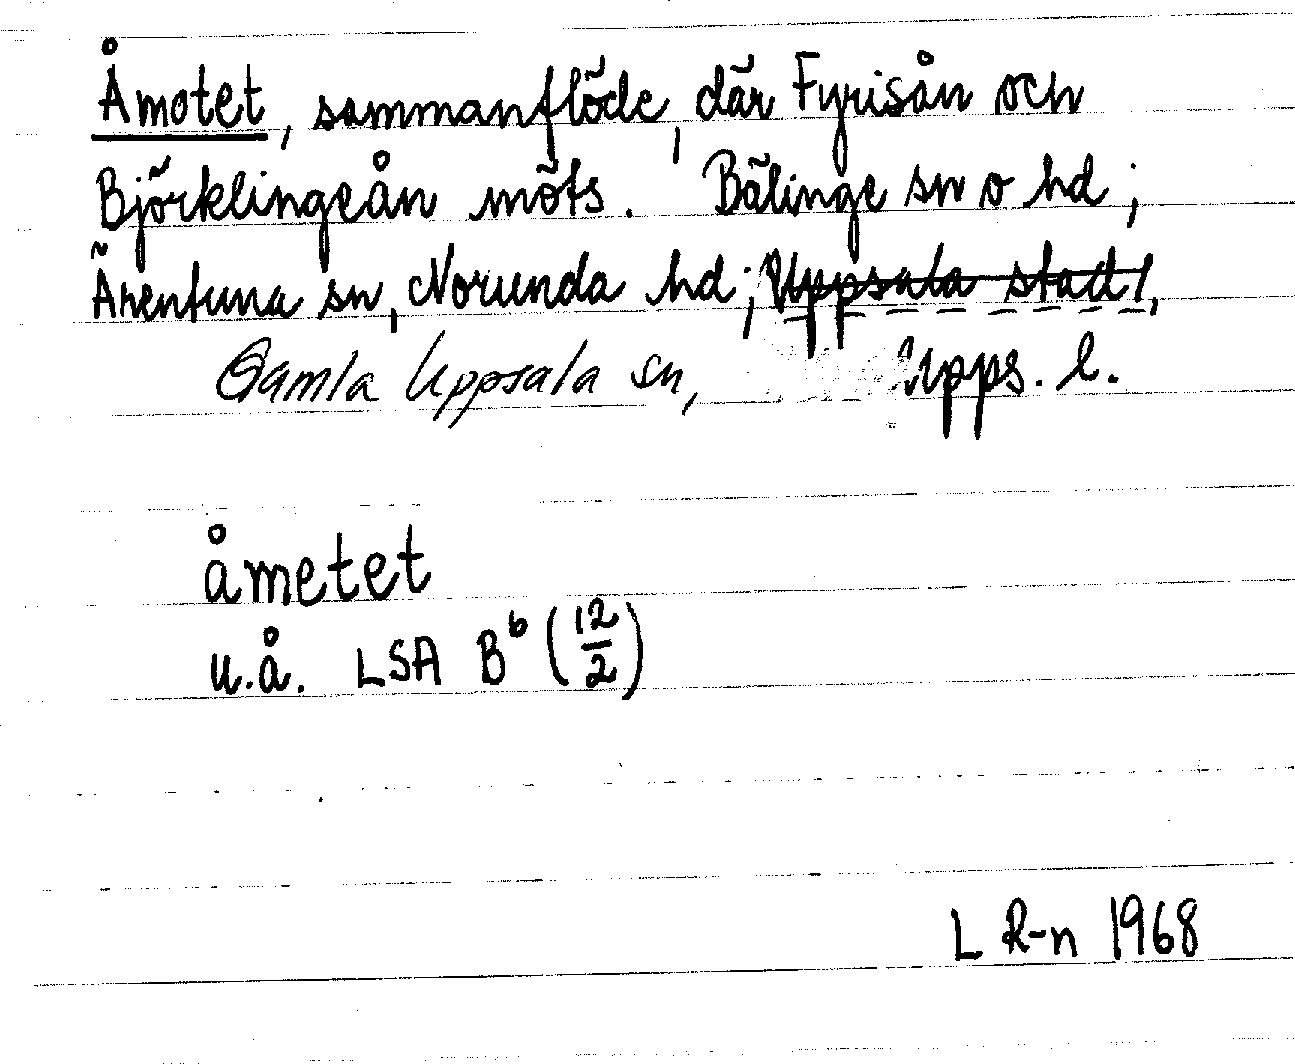 Åmotet, sammanflöde, där Fyrisån och
Björklingeån möts. Bälinge sn o hd;
Ärentuna sn, Norunda hd; Uppsala stad,
Gamla Uppsala sn, Upps. l.
åmetet
u.å. LSA B⁶ (12/2)
L R-n 1968